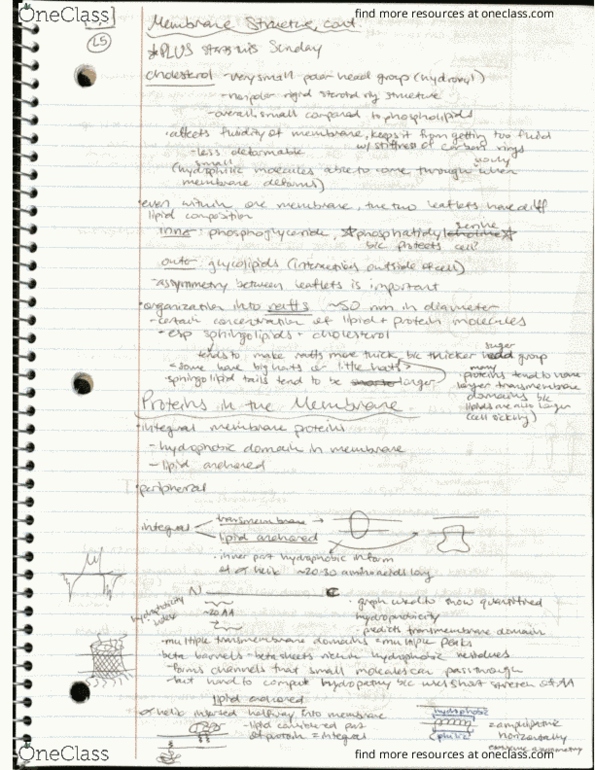 OneClass
find more resources at oneclass.com
L5
Membrane Structure, cont.
*PLUS starts this Sunday
cholesterol - very small polar head group (hydroxyl)
- nonpolar rigid steroid ring structure
- overall, small compared to phospholipids
· affects fluidity of membrane, keeps it from getting too fluid
w/ stiffness of carbon rings
- less deformable
(small hydrophilic molecules able to come through when
membrane deforms)
· even within one membrane, the two leaflets have diff
lipid composition
inner: phosphoglyceride, *phosphatidyl choline serine*
b/c protects cell?
outer: glycolipids (interactions outside of cell)
- assymetry between leaflets is important
· organization into rafts ~50 nm in diameter
- certain concentration of lipid + protein molecules
- esp sphingolipids + cholesterol
tends to make rafts more thick, b/c thicker sugar head group
- some have big hats or little hats
- sphingolipid tails tend to be longer
many proteins tend to have
longer transmembrane
domains b/c
Proteins in the Membrane
· integral membrane proteins
- hydrophobic domain in membrane
- lipid anchored
· peripheral
integral
transmembrane →
lipid anchored
· inner part hydrophobic in form
of α helix ~20-30 amino acids long
hydrophobicity index
N
C
~20 AA
· graph used to show quantified
hydrophobicity
predicts transmembrane domain
· multiple transmembrane domains = multiple peaks
· beta barrels - beta sheets rich in hydrophobic residues
- forms channels that small molecules can pass through
- but hard to compute hydropathy b/c well short stretch of AA
lipid anchored
α helix inserted halfway into membrane
- lipid considered part
of protein = integral
hydrophobic
philic
= amphipathic
horizontally
OneClass
find more resources at oneclass.com